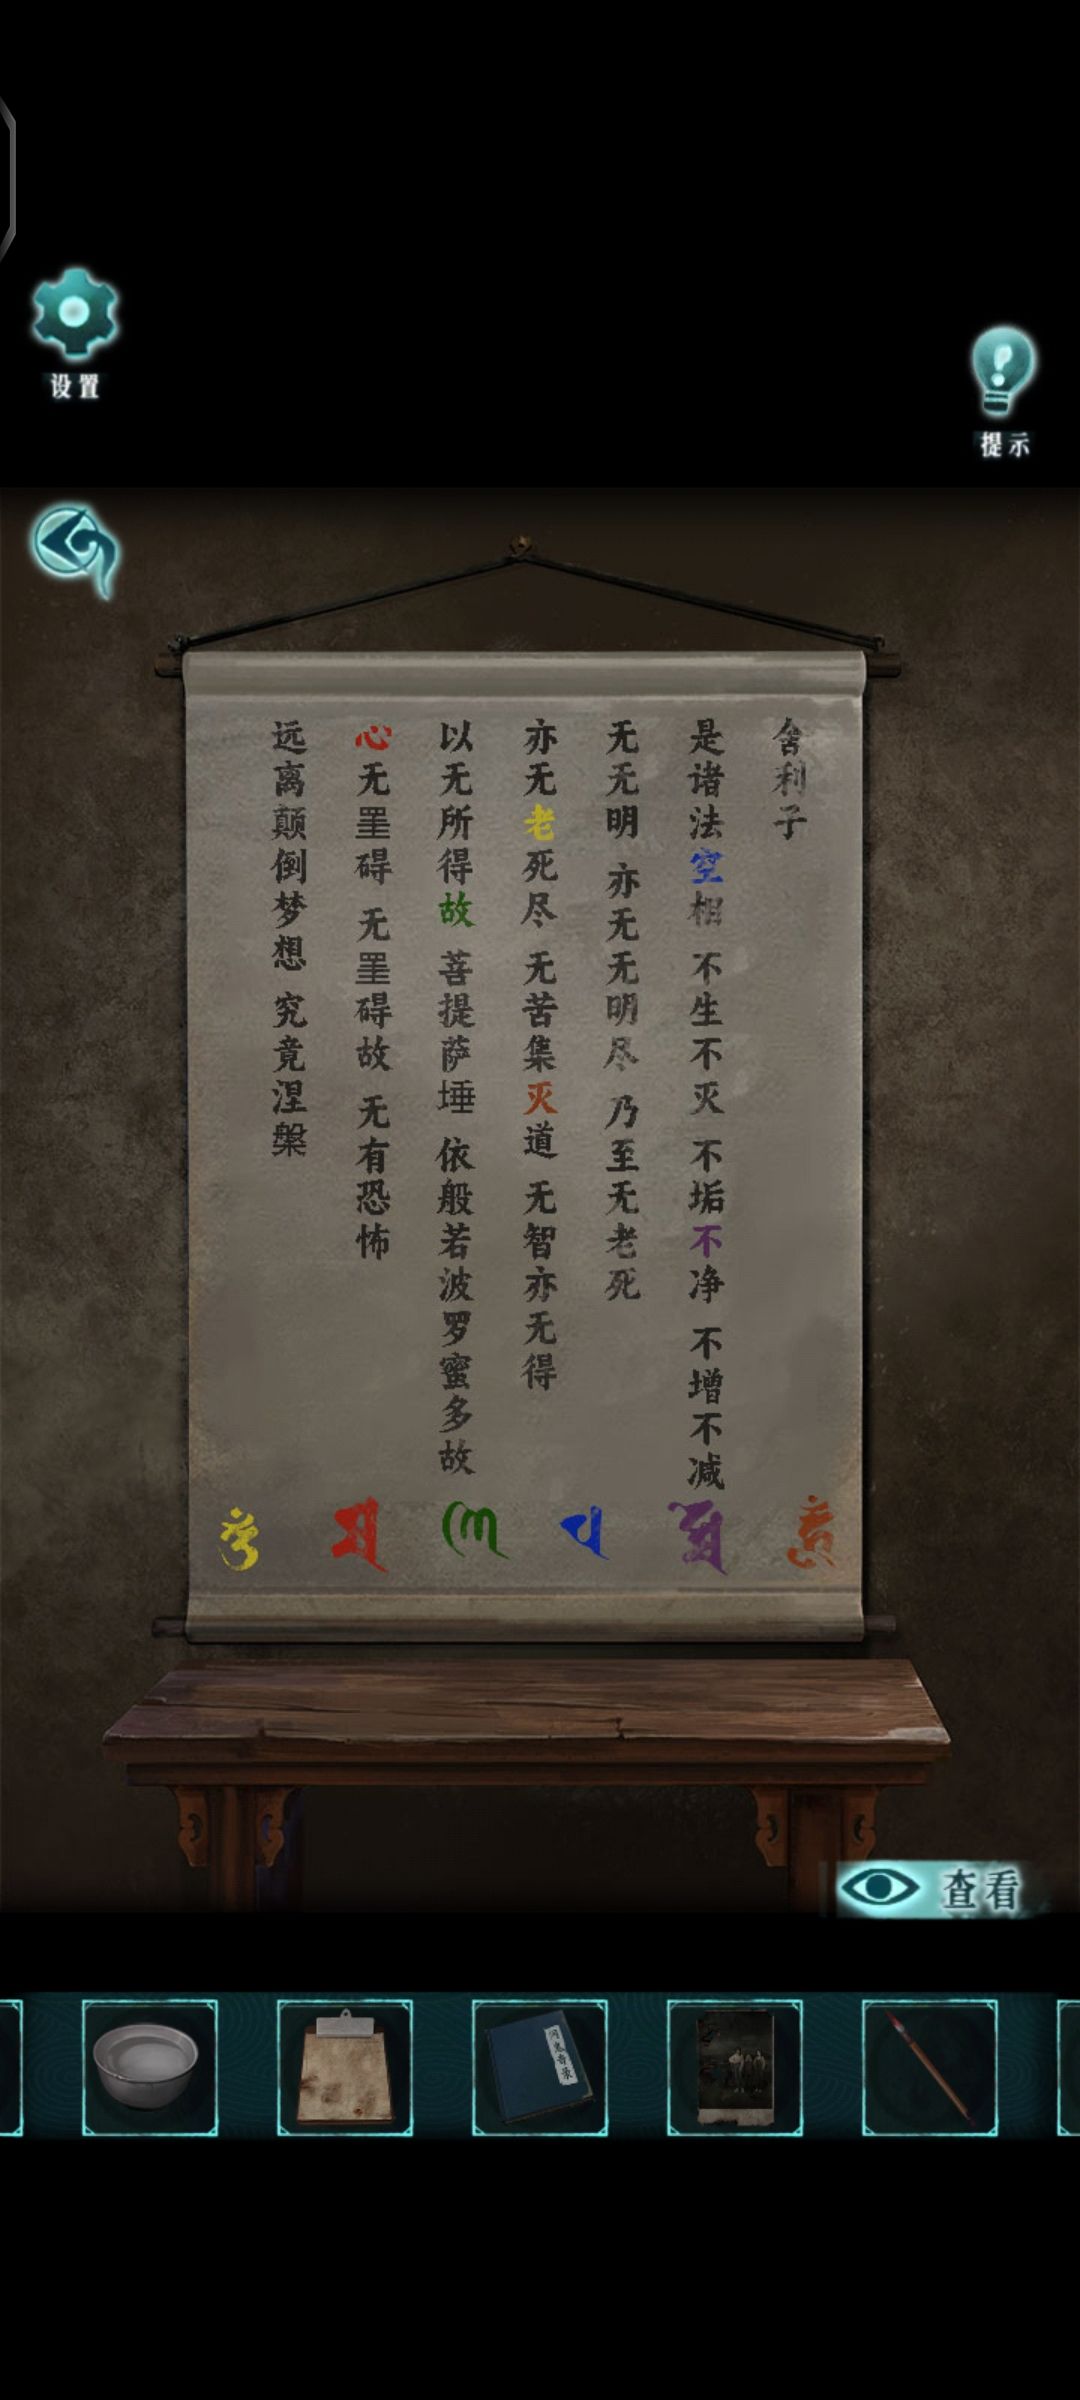 设置
提示
舍利子
是诸法空相 不生不灭 不垢不净 不增不减
无无明 亦无无明尽 乃至无老死
亦无老死尽 无苦集灭道 无智亦无得
以无所得故 菩提萨埵 依般若波罗蜜多故
心无罣碍 无罣碍故 无有恐怖
远离颠倒梦想 究竟涅槃
查看